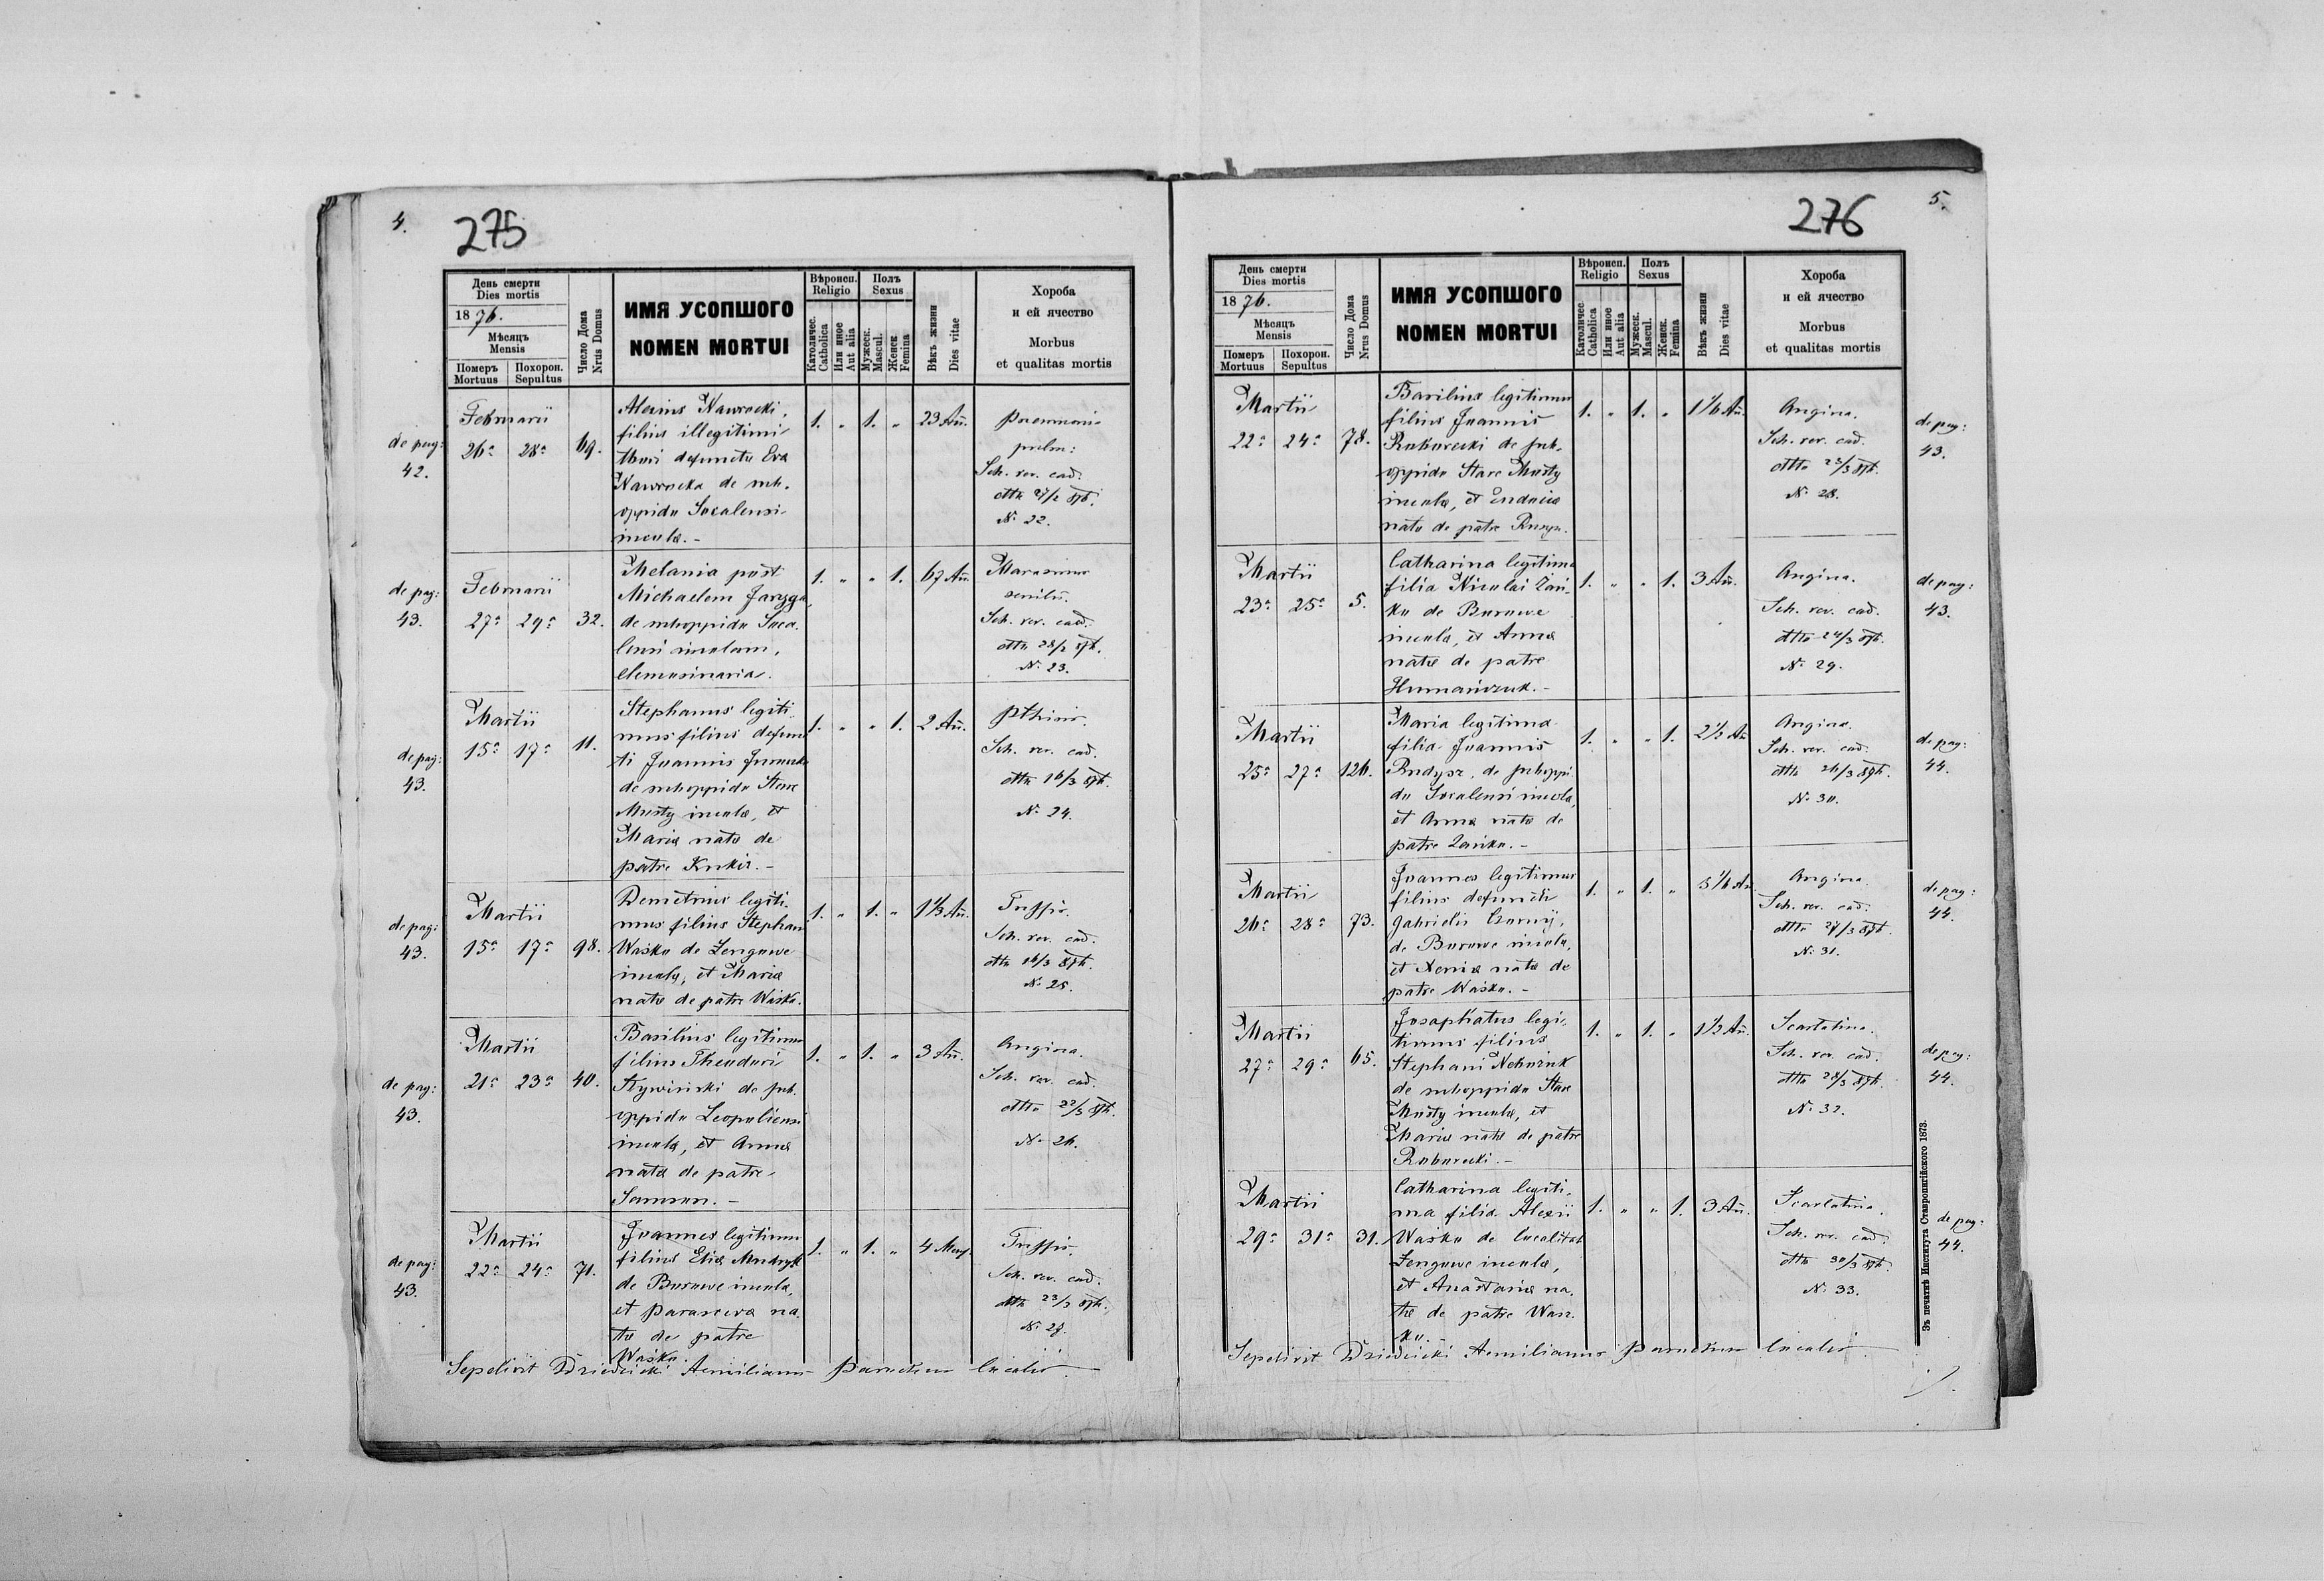 4.
275
День смерти
Dies mortis
1876.
Мѣсяцъ
Mensis
Померъ
Mortuus
Похорон.
Sepultus
Число Дома
Nrus Domus
ИМЯ УСОПШОГО
NOMEN MORTUI
Вѣроисп.
Religio
Католичес.
Catholica
Или иное
Aut alia
Полъ
Sexus
Мужеск.
Mascul.
Женск
Femina
Вѣкъ жизни
Dies vitae
Хороба
и ей ячество
Morbus
et qualitas mortis
de pag:
42.
Februarii
26ª 28ª 69.
Alexius Nawrocki,
filius illegitimi
thori defuncta Eva
Nawrocka de sub.
oppido Socalensi
incola. -
1. " 1. " 23 Añ.
Pneumonia
pulm:
Sch. rev. cad.
dtto 27/2 876.
N: 22.
de pag:
43.
Februarii
27ª 29ª 32.
Melania post
Michaelem
de suboppido Soca
lensi incolam,
elemosinaria.
1. " " 1. 67 Añ.
Marasmus
senilis.
Sch. rev. cad.
dtto 28/2 876.
N: 23.
de pag:
43.
Martii
15ª 17ª 11.
Stephanus legiti
mus filius defunc
ti Joannis
de suboppido Stare
Musty incola, et
Maria nata de
patre Kukiz. -
1. " " 1. 2 Añ.
Pthisis.
Sch. rev. cad.
dtto 16/3 876.
N: 24.
de pag:
43.
Martii
15ª 17ª 98.
Demetrius legiti.
mus filius Stephani
Waśko de Zenguwe
incola, et Maria
nata de patre Waśko.
1. " 1. " 1 1/3 Añ.
Tussis.
Sch. rev. cad.
dtto 16/3 876.
N: 25.
de pag:
43.
Martii
21ª 23ª 40.
Basilius legitimus
filius Theodori
Stywiński de sub.
oppido Leopoliensi
incola, et Anna
nata de patre
Samson. -
1. " 1. " 3 Añ.
Angina.
Sch. rev. cad.
dtto 22/3 876.
N: 26.
de pag:
43.
Martii
22ª 24ª 71.
Joannes legitimus
filius Elia Mudryk
de Borowe incola,
et Parasceva na.
ta de patre
Waśko.
1. " 1. " 4 Mens
Tussis.
Sch. rev. cad.
dtto 23/3 876.
N: 27.
Sepelivit Dzieducki Aemilianus Parochus localis.
5.
276
День смерти
Dies mortis
1876.
Мѣсяцъ
Mensis
Померъ
Mortuus
Похорон.
Sepultus
Число Дома
Nrus Domus
ИМЯ УСОПШОГО
NOMEN MORTUI
Вѣроисп.
Religio
Католичес.
Catholica
Или иное
Aut alia
Полъ
Sexus
Мужеск.
Mascul.
Женск.
Femina
Вѣкъ жизни
Dies vitae
Хороба
и ей ячество
Morbus
et qualitas mortis
Martii
22ª 24ª 78.
Basilius legitimus
filius Joannis
de sub.
oppido Stare Musty
incola, et Eudocia
nata de patre Rusyn.
1. " 1. " 1 1/6 Añ.
Angina.
Sch. rev. cad.
dtto 23/3 876.
N: 28.
de pag:
43.
Martii
23ª 25ª 5.
Catharina legitima
filia Nicolai Zań.
ko de Borowe
incola, et Anna
nata de patre
Humańczuk. -
1. " " 1. 3 Añ.
Angina.
Sch. rev. cad.
dtto 24/3 876.
N: 29.
de pag:
43.
Martii
25ª 27ª 126.
Maria legitima
filia Joannis
Rudysz, de suboppi.
do Socalensi incola,
et Anna nata de
patre Zańko. -
1. " " 1. 2 1/2 Añ
Angina.
Sch. rev. cad.
dtto 26/3 876.
N: 30.
de pag:
44.
Martii
26ª 28ª 73.
Joannes legitimus
filius defuncti
Gabrielis Czornij,
de Borowe incola,
et Xenia nata de
patre Waśko. -
1. " 1. " 3 1/6 Añ.
Angina.
Sch. rev. cad.
dtto 27/3 876.
N: 31.
de pag:
44.
Martii
27ª 29ª 65.
Josaphatus legi.
timus filius
Stephani
de suboppido Stare
Musty incola, et
Maria nata de patre
1. " 1. " 1 1/2 Añ.
Scarlatina.
Sch. rev. cad.
dtto 28/3 876.
N: 32.
de pag:
44.
Martii
29ª 31ª 31.
Catharina legiti.
ma filia Alexii
Waśko de localitate
Zenguwe incola,
et Anastasia na.
ta de patre Waś.
ko. -
1. " " 1. 3 Añ.
Scarlatina.
Sch. rev. cad.
dtto 30/3 876.
N: 33.
de pag:
44.
Sepelivit Dzieducki Aemilianus Parochus localis.
Зъ печатнѣ Института Ставропигійского 1873.